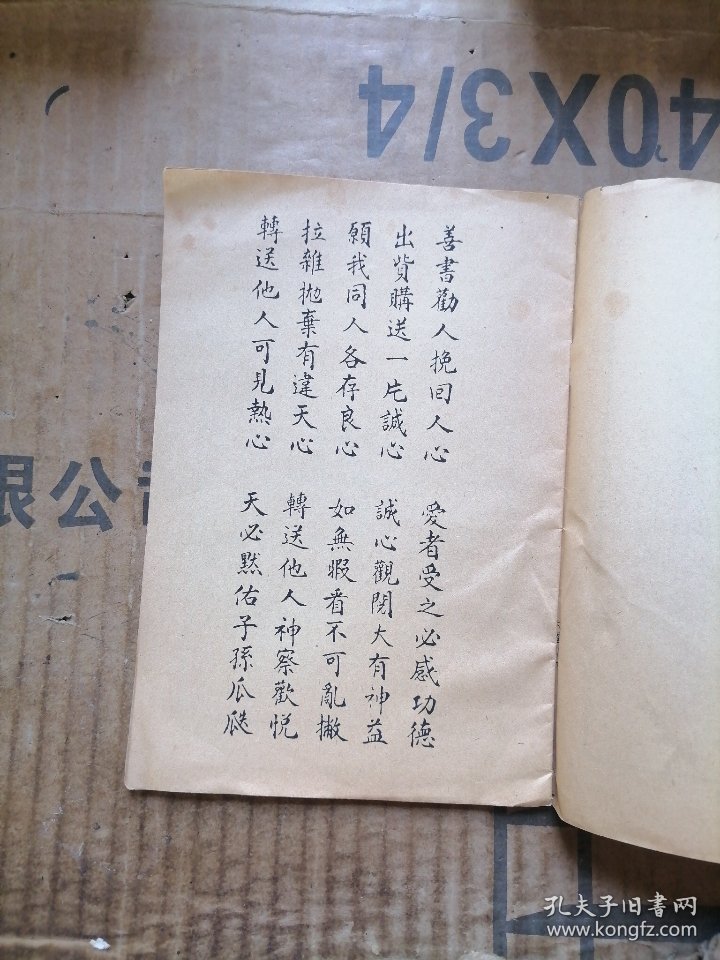 40X3/4
善書勸人挽回人心　愛者受之必感功德
出貲購送一片誠心　誠心觀閱大有神益
願我同人各存良心　如無暇看不可亂撇
拉雜拋棄有違天心　轉送他人神察歡悅
轉送他人可見熱心　天必默佑子孫瓜瓞
限公
孔夫子旧书网
www.kongfz.com